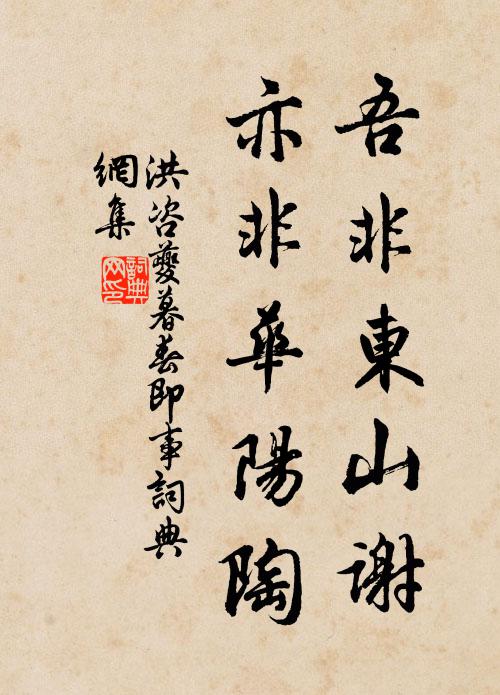 吾非東山謝
亦非華陽陶
洪咨夔暮春即事詞典
網集
詞典
网印